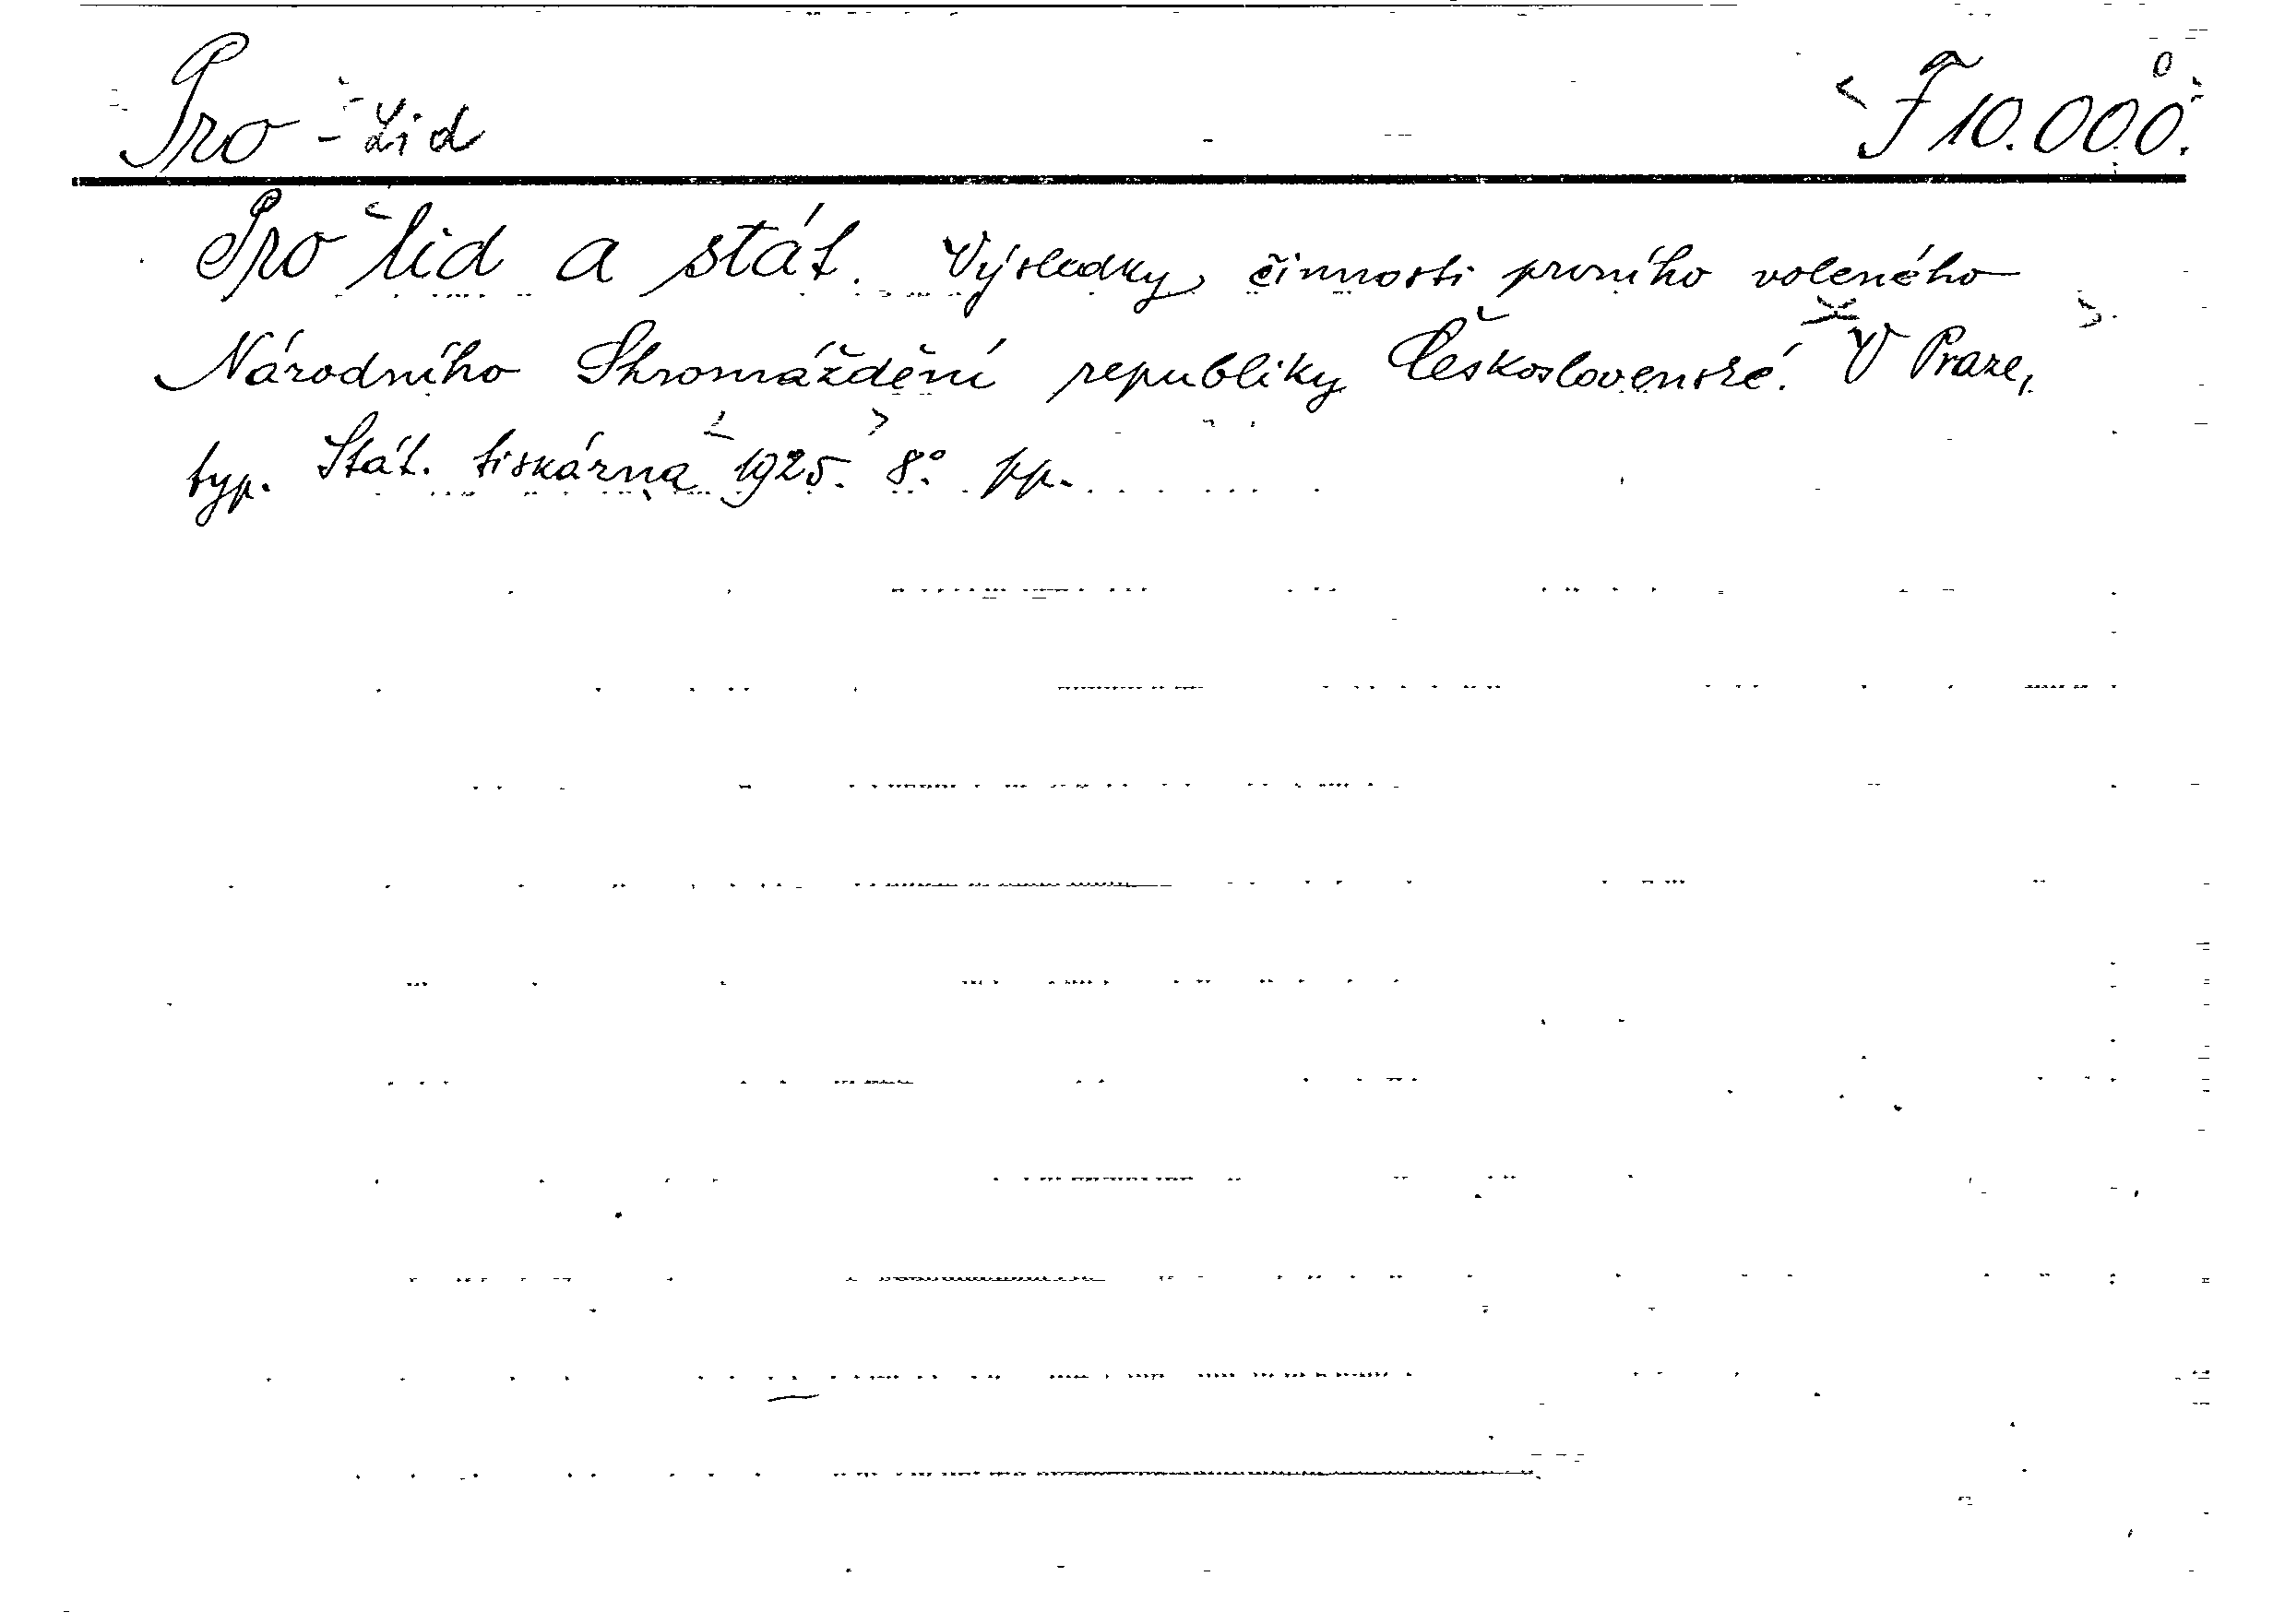 Pro - Lid F 10.000.
Pro lid a stát. Výsledky činnosti prvního voleného
Národního Shromáždění republiky Československé. V Praze,
typ. Stát. tiskárna 1925. 8°. pp.